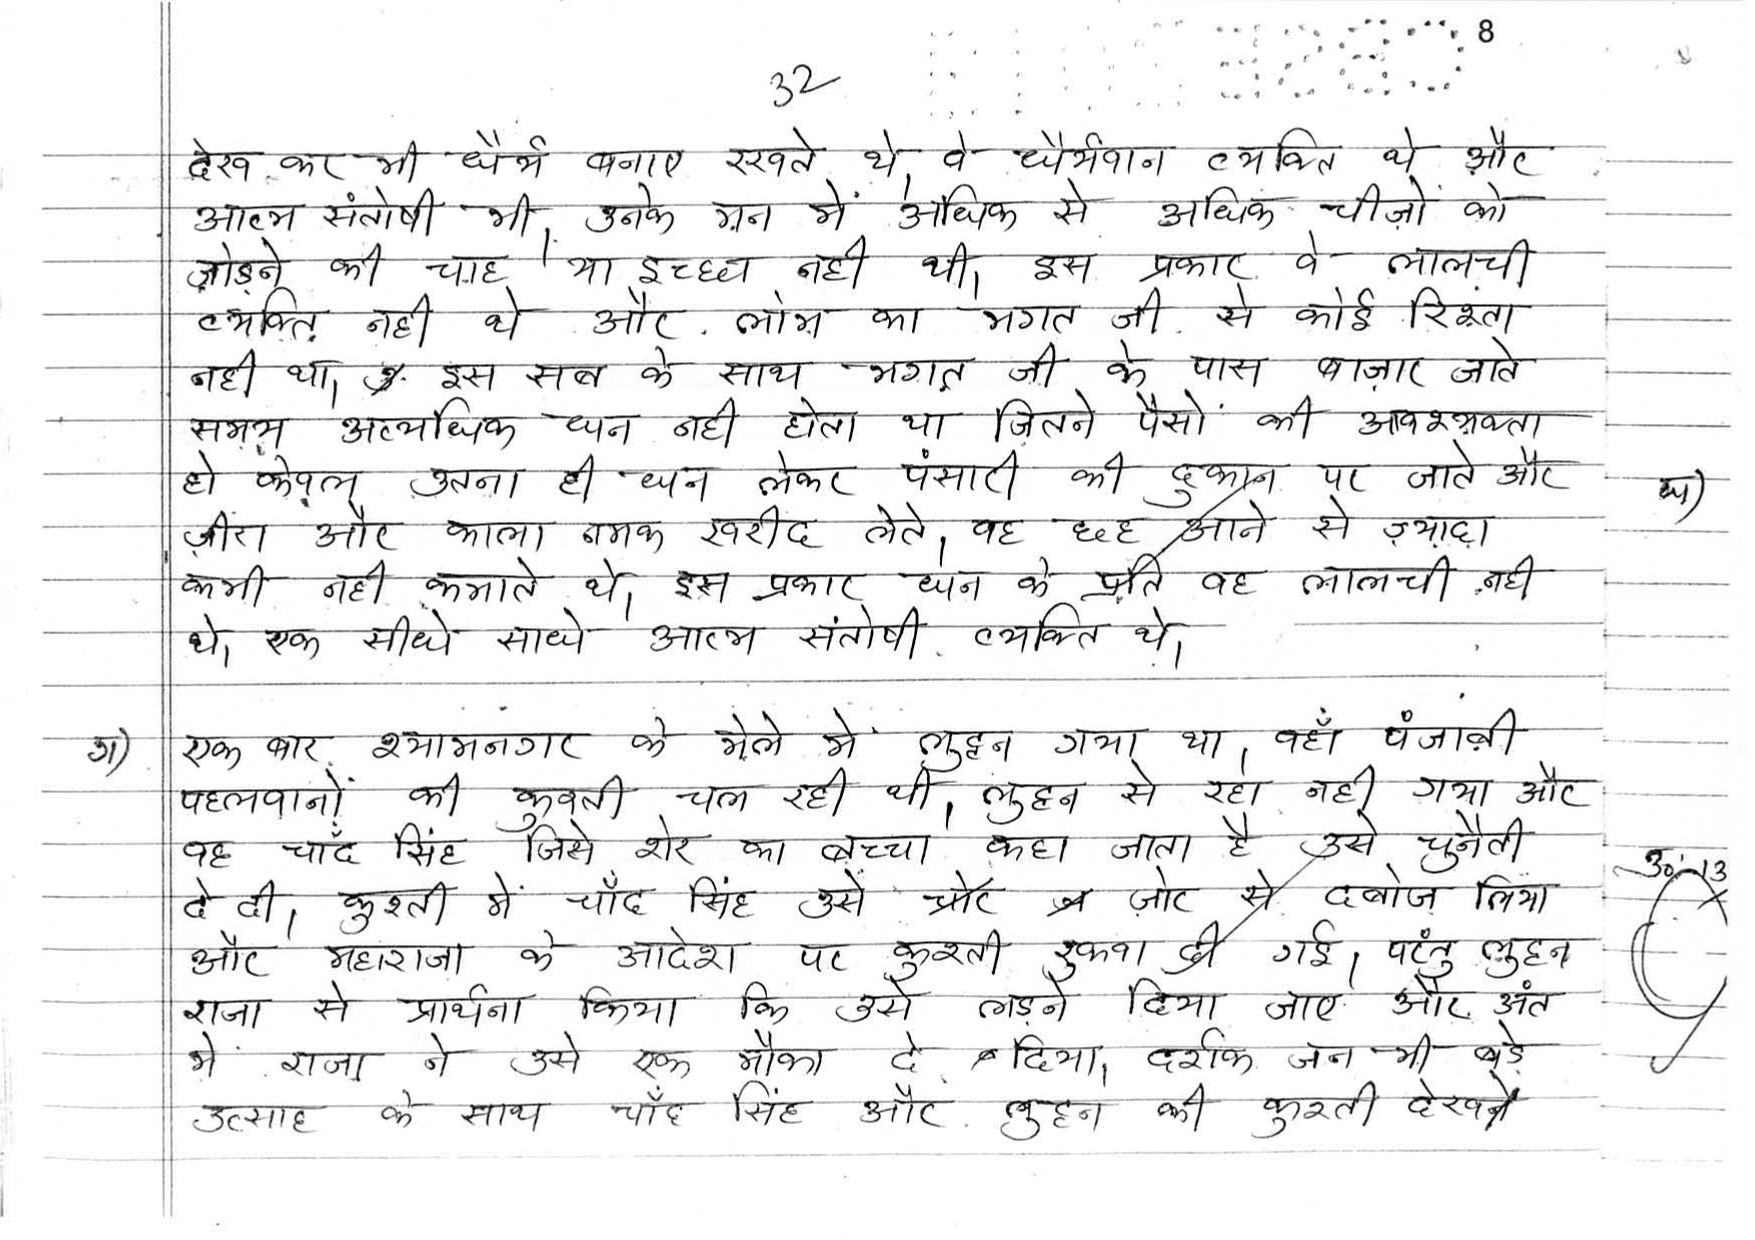 8
32
देख कर भी धैर्य बनाए रखते थे, वे धैर्यवान व्यक्ति थे और
आत्म संतोषी भी, उनके मन में अधिक से अधिक चीज़ों को
जोड़ने की चाह या इच्छा नही थी, इस प्रकार वे लालची
व्यक्ति नही थे और लोभ का भगत जी से कोई रिश्ता
नही था, इस सब के साथ भगत जी के पास बाज़ार जाते
समय अत्यधिक धन नही होता था जितने पैसों की आवश्यक्ता
हो केवल उतना ही धन लेकर पंसारी की दुकान पर जाते और
ज़ीरा और काला नमक खरीद लेते, वह छह आने से ज़्यादा
कभी नही कमाते थे, इस प्रकार धन के प्रति वह लालची नही
थे, एक सीधे साधे आत्म संतोषी व्यक्ति थे,
घ)
ग) एक बार श्यामनगर के मेले मे लुट्टन गया था, वहाँ पंजाबी
पहलवानों की कुश्ती चल रही थी, लुट्टन से रहा नही गया और
वह चाँद सिंह जिसे शेर का बच्चा कहा जाता है उसे चुनौती
दे दी, कुश्ती में चाँद सिंह उसे ज़ोर से दबोज लिया
और महाराजा के आदेश पर कुश्ती रुकवा दी गई, परंतु लुट्टन
राजा से प्रार्थना किया कि उसे लड़ने दिया जाए और अंत
मे राजा ने उसे एक मौका दे दिया, दर्शक जन भी बड़े
उत्साह के साथ चाँद सिंह और लुट्टन की कुश्ती देखने
उ०:13